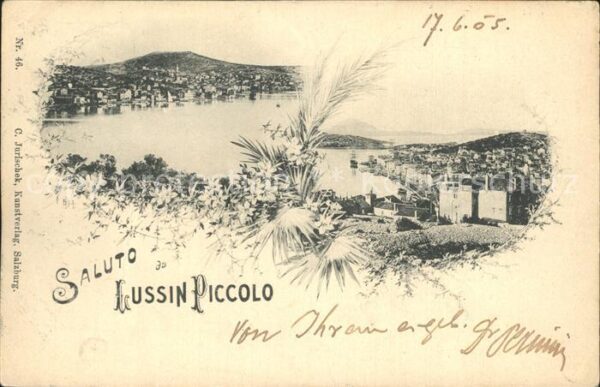 17.6.05.
Nr. 46. C. Jurischek, Kunstverlag, Salzburg.
SALUTO da
LUSSIN PICCOLO
Von Ihrem ergeb. Dr